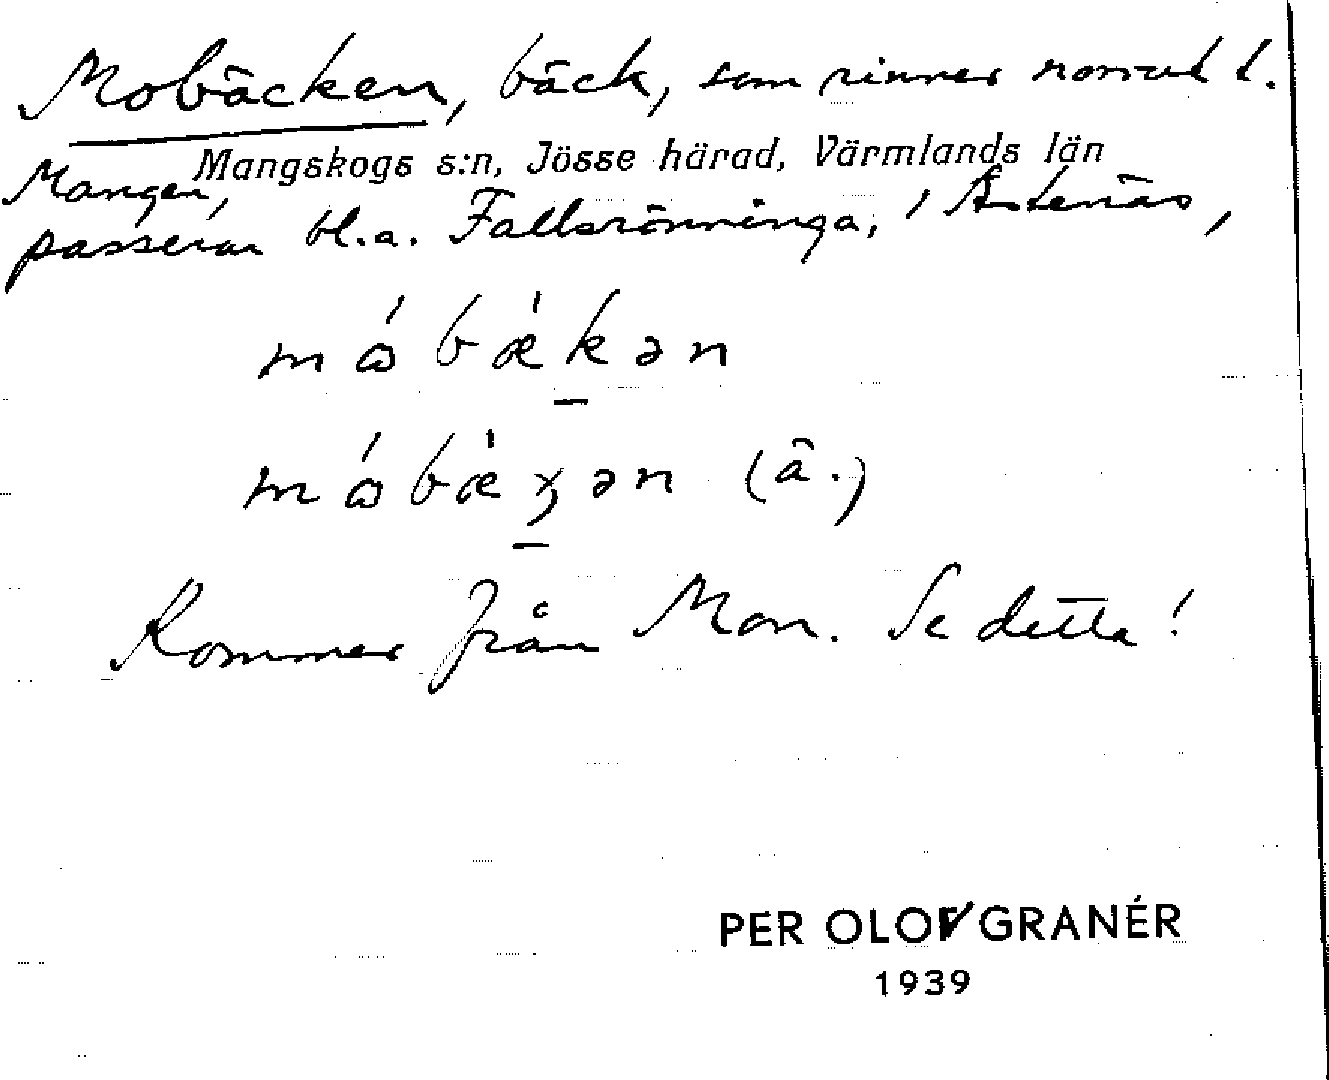 Mobäcken, bäck, som rinner norrut t.
Mangskogs s:n, Jösse härad, Värmlands län
Mangen,
passerar bl.a. Fallsrönninga, Åstenäs,
mɷ́bǽkən
mɷ́bǽɣən (ä.)
Kommer från Mon. Se detta!
PER OLOV GRANÉR
1939